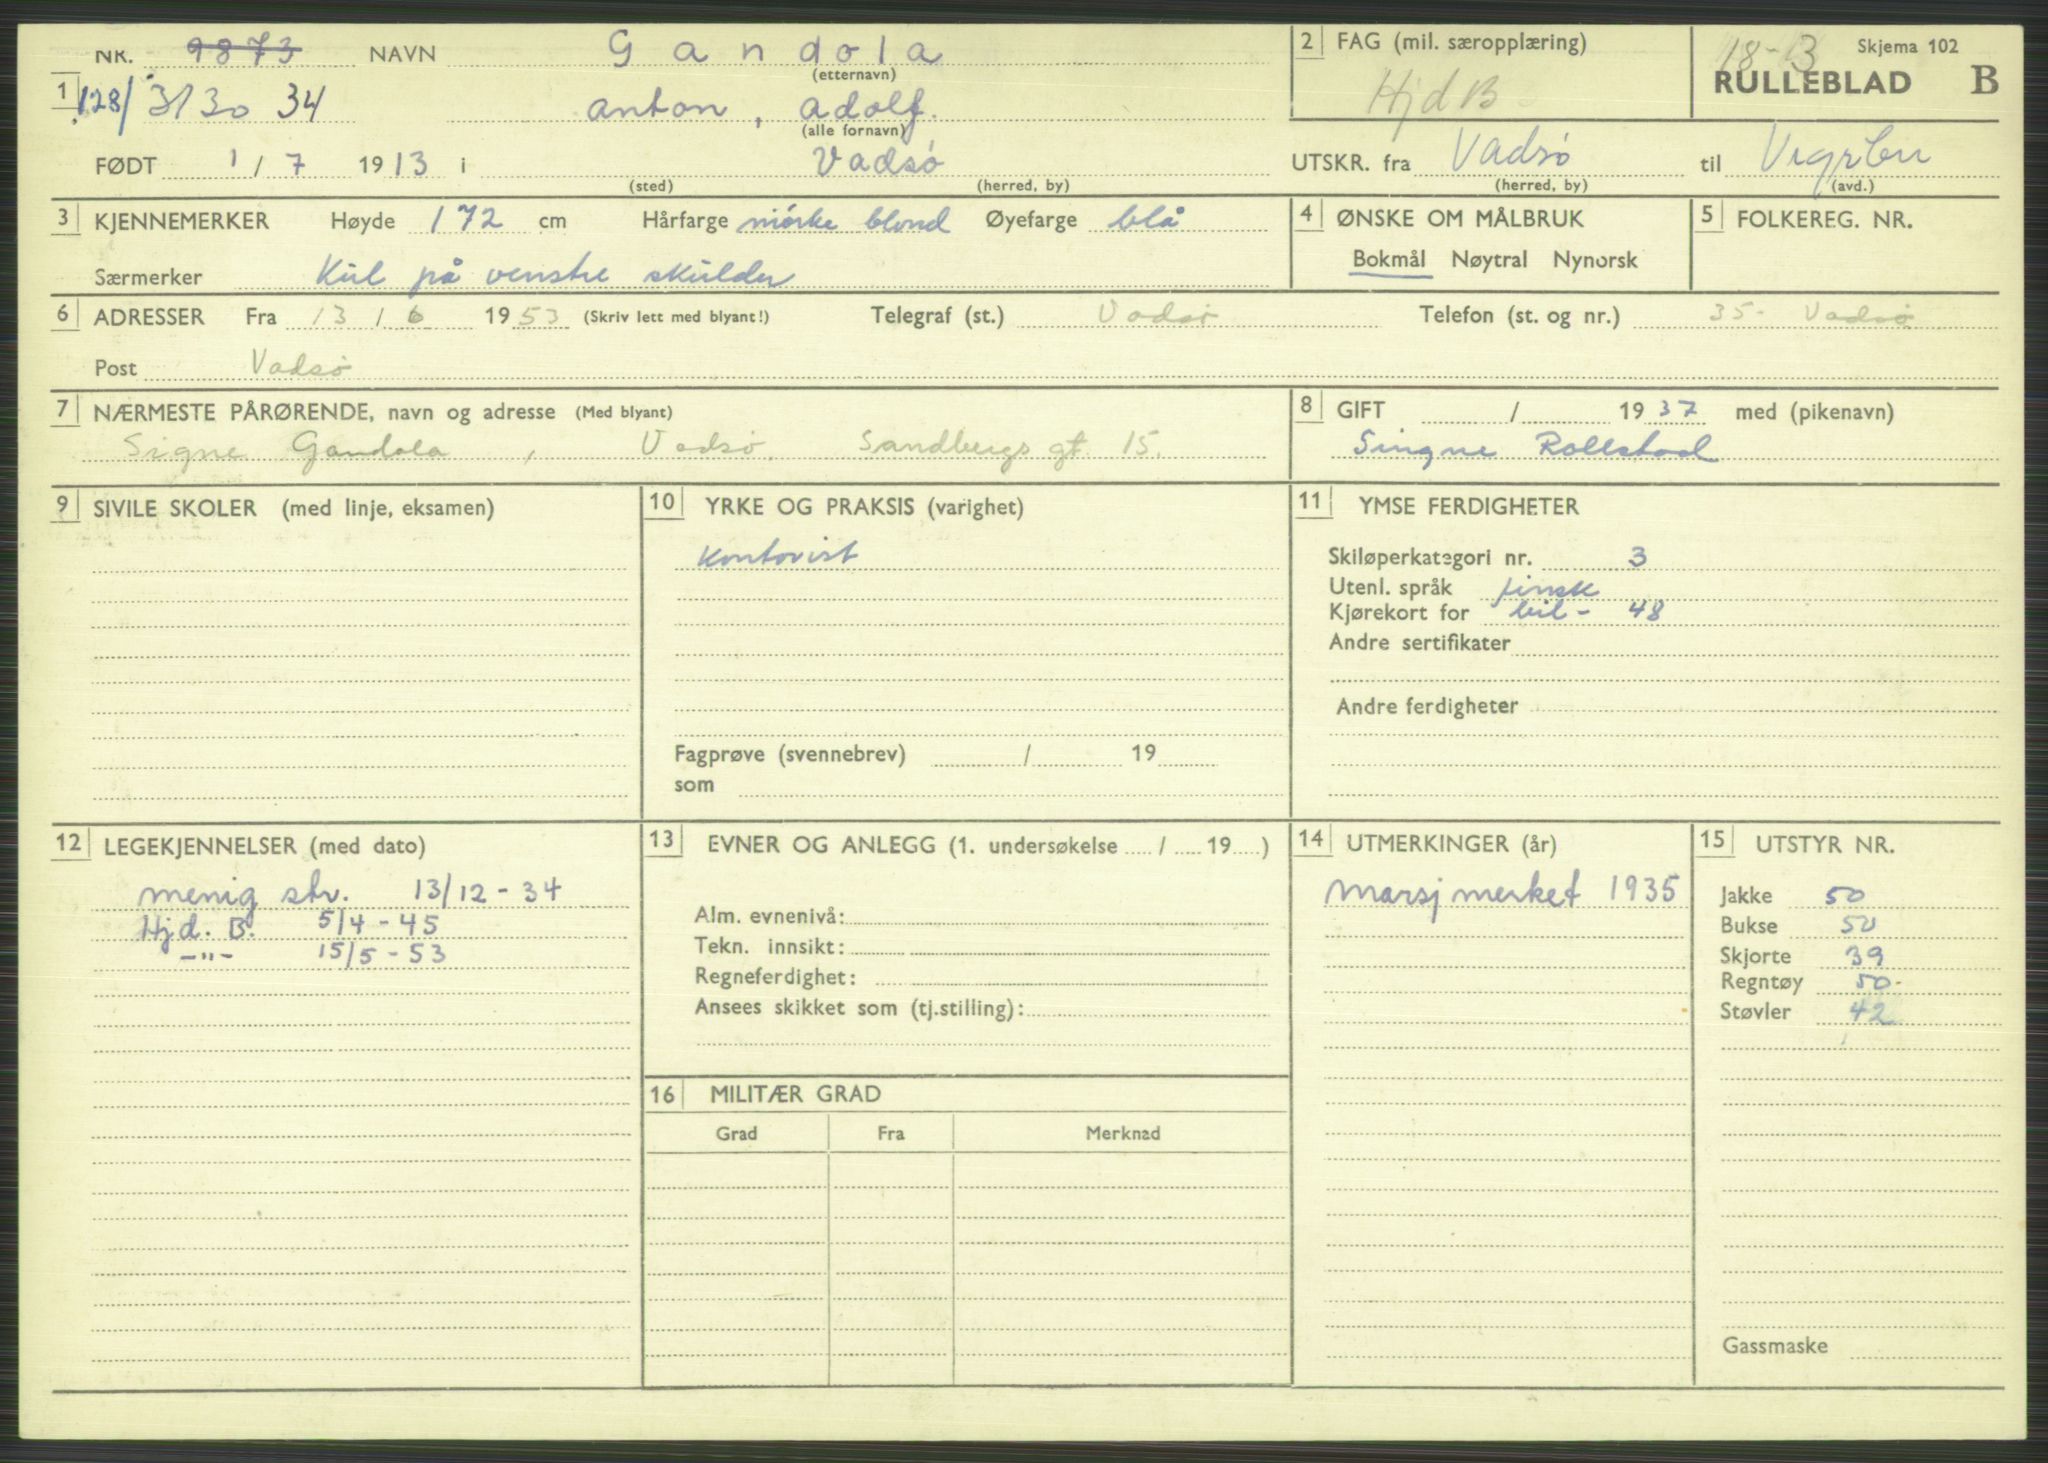 NR. 9873 NAVN Gandola 2 FAG (mil. særopplæring) 18-B Skjema 102
(etternavn) Hjd B RULLEBLAD B
1 128/ 3130 34 anton, adolf.
(alle fornavn)
FØDT 1 / 7 1913 i Vadsø UTSKR. fra Vadsø til
(sted) (herred, by) (herred, by) (avd.)
3 KJENNEMERKER Høyde 172 cm Hårfarge mörke blond Øyefarge blå 4 ØNSKE OM MÅLBRUK 5 FOLKEREG. NR.
Særmerker Kul på venstre skulder Bokmål Nøytral Nynorsk
6 ADRESSER Fra 13 / 6 1953 (Skriv lett med blyant!) Telegraf (st.) Vadsø Telefon (st. og nr.) 35 - Vadsø
Post Vadsø
7 NÆRMESTE PÅRØRENDE, navn og adresse (Med blyant) 8 GIFT / 1937 med (pikenavn)
Signe Gandola, Vadsø. Sandbergs gt 15. Singne Rollstad
9 SIVILE SKOLER (med linje, eksamen) 10 YRKE OG PRAKSIS (varighet) 11 YMSE FERDIGHETER
kontorist Skiløperkategori nr. 3
Utenl. språk finsk
Kjørekort for bil - 48
Andre sertifikater
Andre ferdigheter
Fagprøve (svennebrev) / 19
som
12 LEGEKJENNELSER (med dato) 13 EVNER OG ANLEGG (1. undersøkelse / 19 ) 14 UTMERKINGER (år) 15 UTSTYR NR.
menig str. 13/12 - 34 Marsjmerket 1935 Jakke 50
Hjd. B. 5/4 - 45 Alm. evnenivå: Bukse 50
-"- 15/5 - 53 Tekn. innsikt: Skjorte 39
Regneferdighet: Regntøy 50-
Ansees skikket som (tj.stilling): Støvler 42
16 MILITÆR GRAD
Grad Fra Merknad
Gassmaske